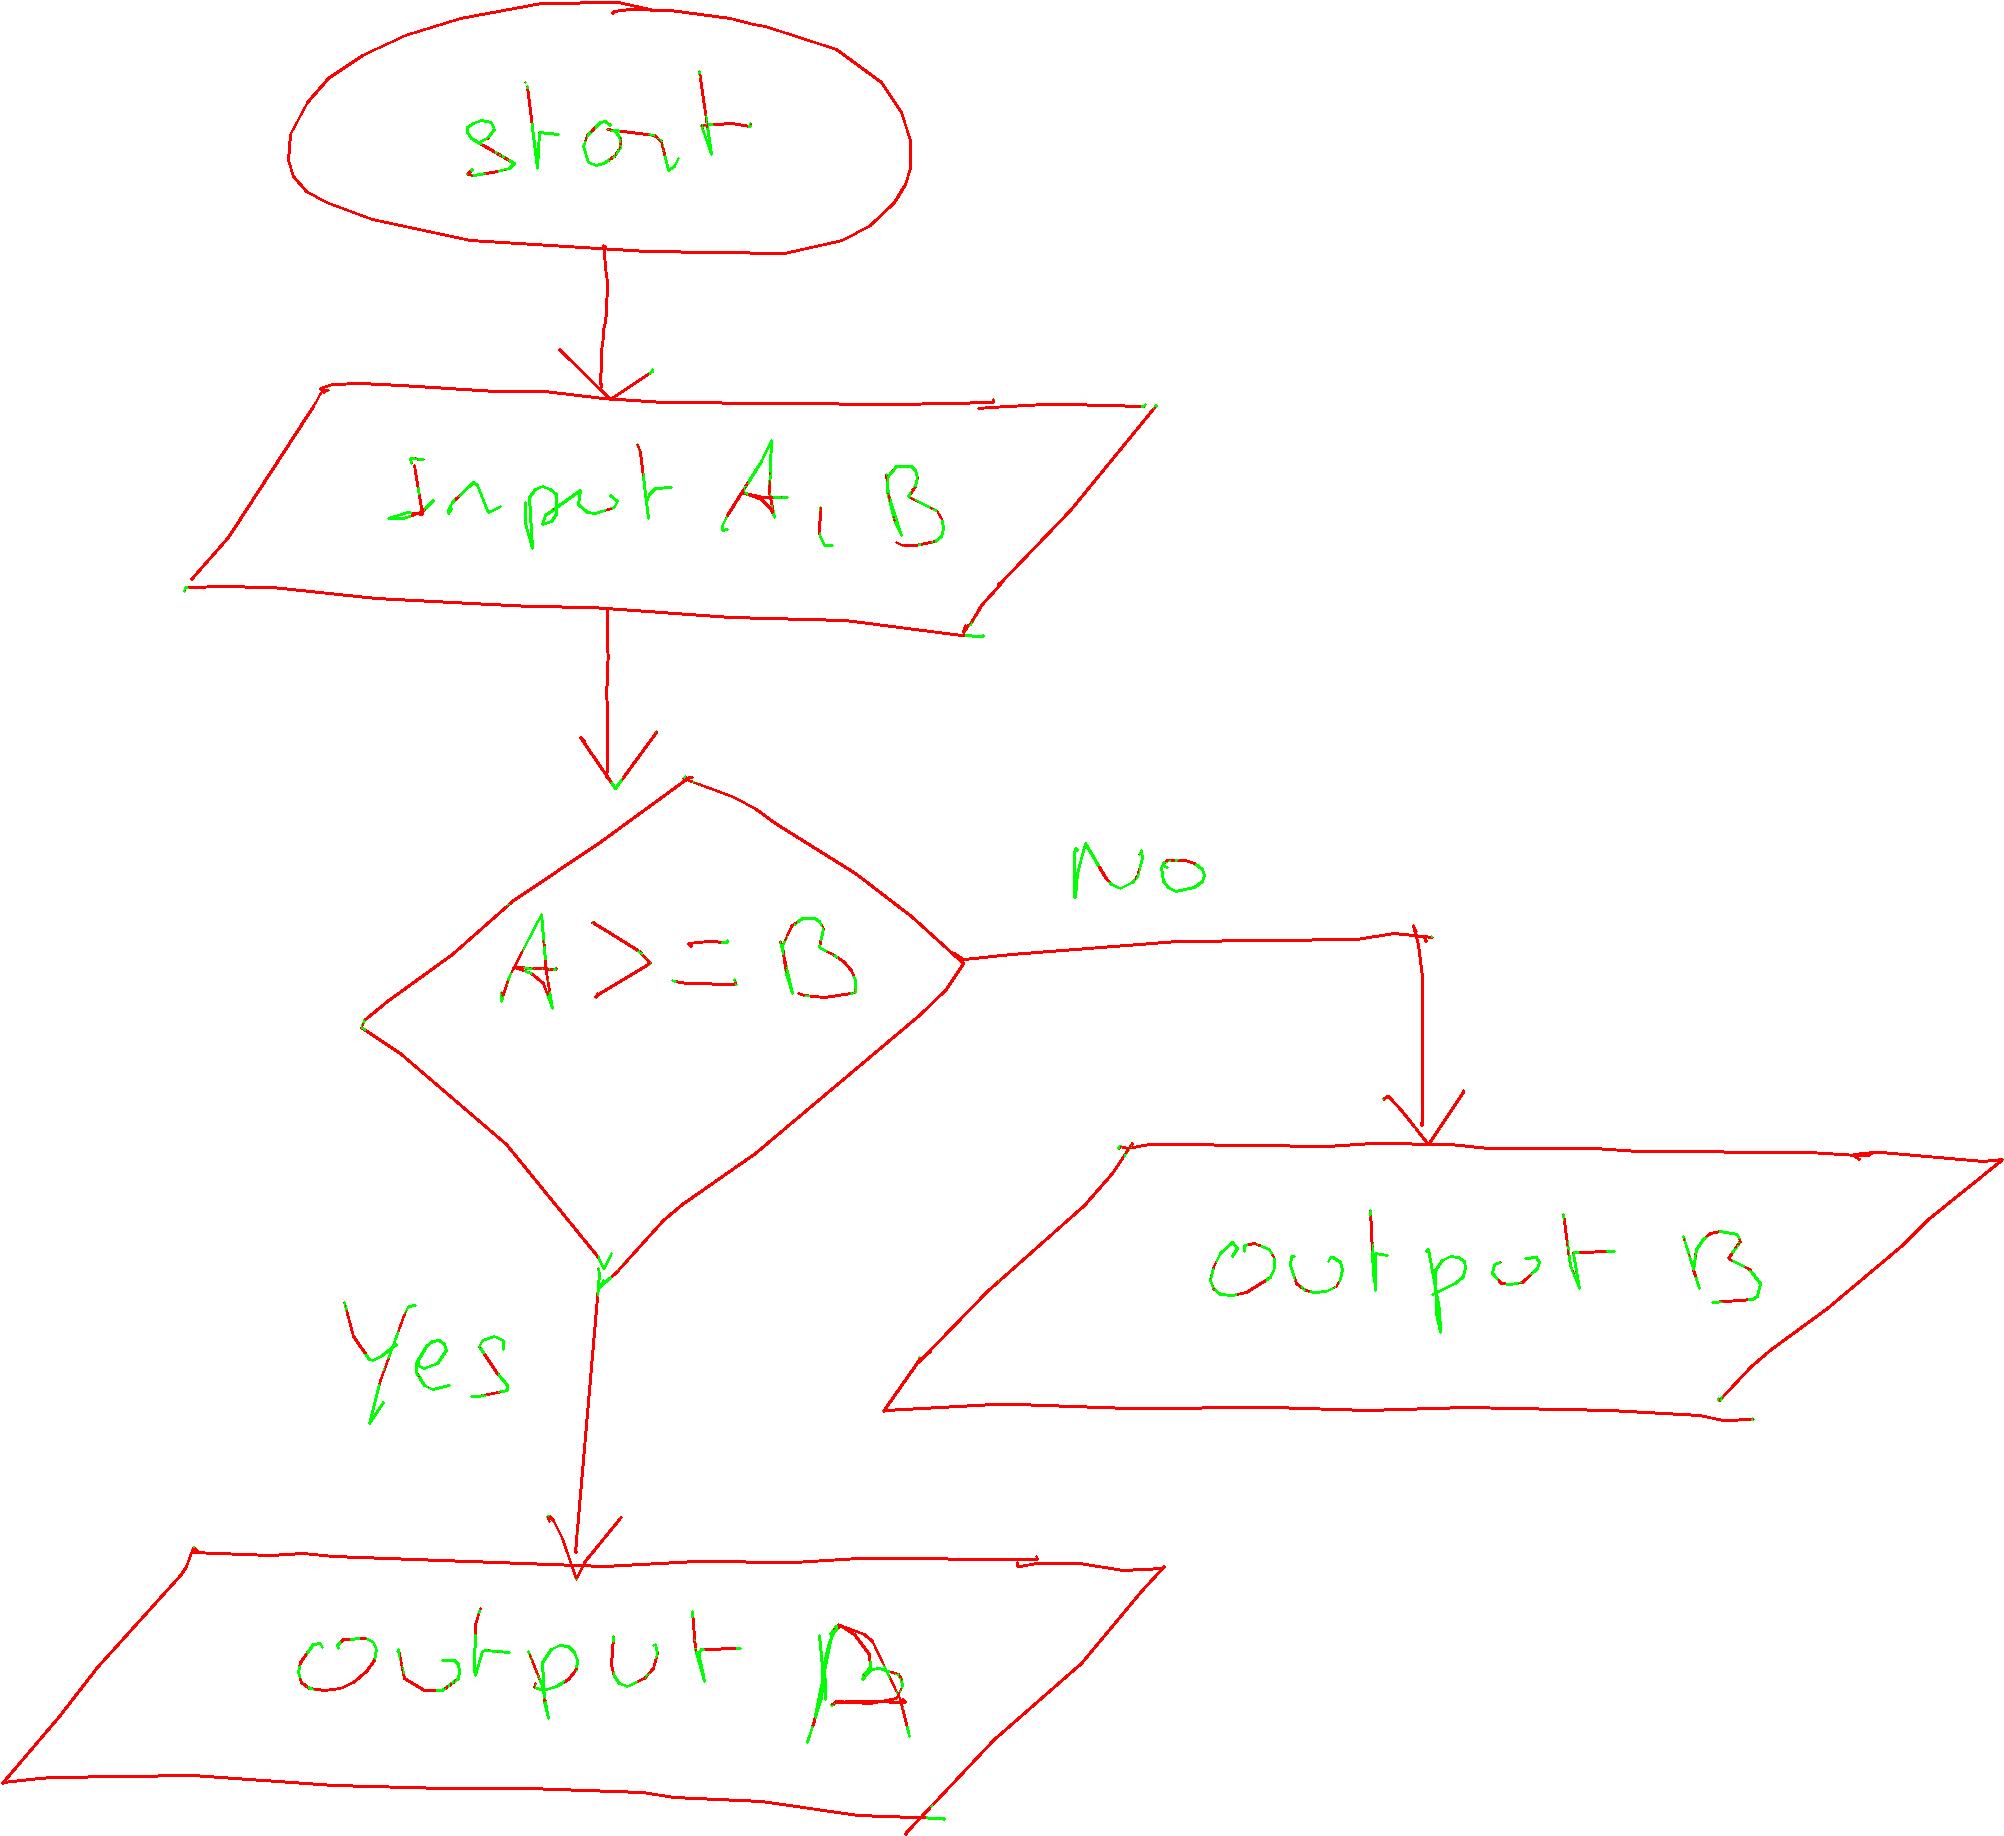 Start
Input A, B
A >= B
No
Yes
Output B
Output A